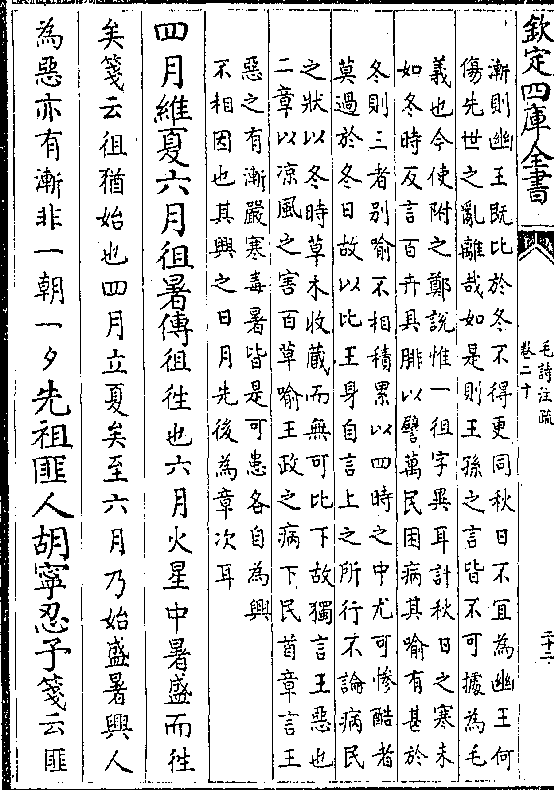 欽定四庫全書
毛詩注疏
卷二十
二十二
漸則幽王既比於冬不得更同秋日不宜為幽王何
傷先世之亂離哉如是則王孫之言皆不可據為毛
義也今使附之鄭說惟一徂字異耳計秋日之寒未
如冬時反言百卉具腓以譬萬民困病其喻有甚於
冬則三者别喻不相積累以四時之中尤可慘酷者
莫過於冬日故以比王身自言上之所行不論病民
之狀以冬時草木收藏而無可比下故獨言王惡也
二章以涼風之害百草喻王政之病下民首章言王
惡之有漸嚴寒毒暑皆是可患各自為興
不相因也其興之日月先後為章次耳
四月維夏六月徂暑傳徂往也六月火星中暑盛而往
矣箋云徂猶始也四月立夏矣至六月乃始盛暑興人
為惡亦有漸非一朝一夕先祖匪人胡寧忍予箋云匪